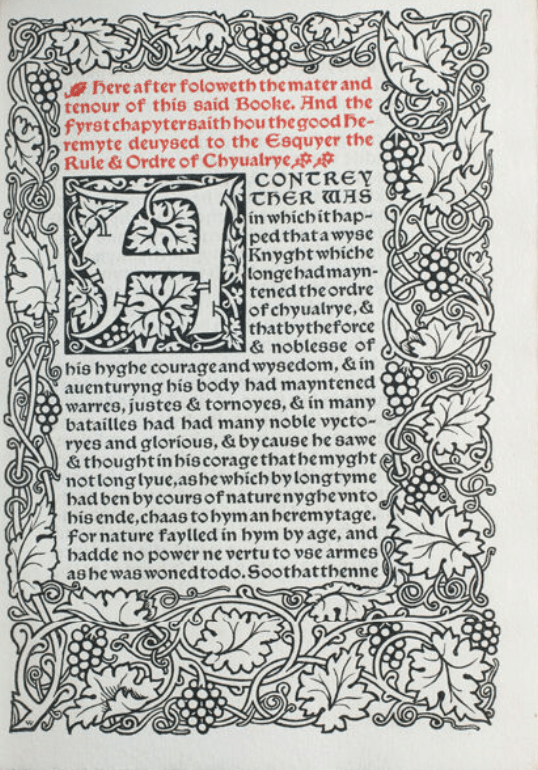 Here after foloweth the mater and
tenour of this said Booke. And the
fyrst chapyter saith hou the good He-
remyte deuysed to the Esquyer the
Rule & Ordre of Chyualrye
A CONTREY
THER WAS
in which it hap-
ped that a wyse
Knyght whiche
longe had mayn-
tened the ordre
of chyualrye, &
that by the force
& noblesse of
his hyghe courage and wysedom, & in
auenturyng his body had mayntened
warres, justes & tornoyes, & in many
batailles had had many noble vycto-
ryes and glorious, & by cause he sawe
& thought in his corage that he myght
not long lyue, as he which by long tyme
had ben by cours of nature nyghe vnto
his ende, chaas to hym an heremytage.
For nature faylled in hym by age, and
hadde no power ne vertu to vse armes
as he was woned to do. Soo that thenne